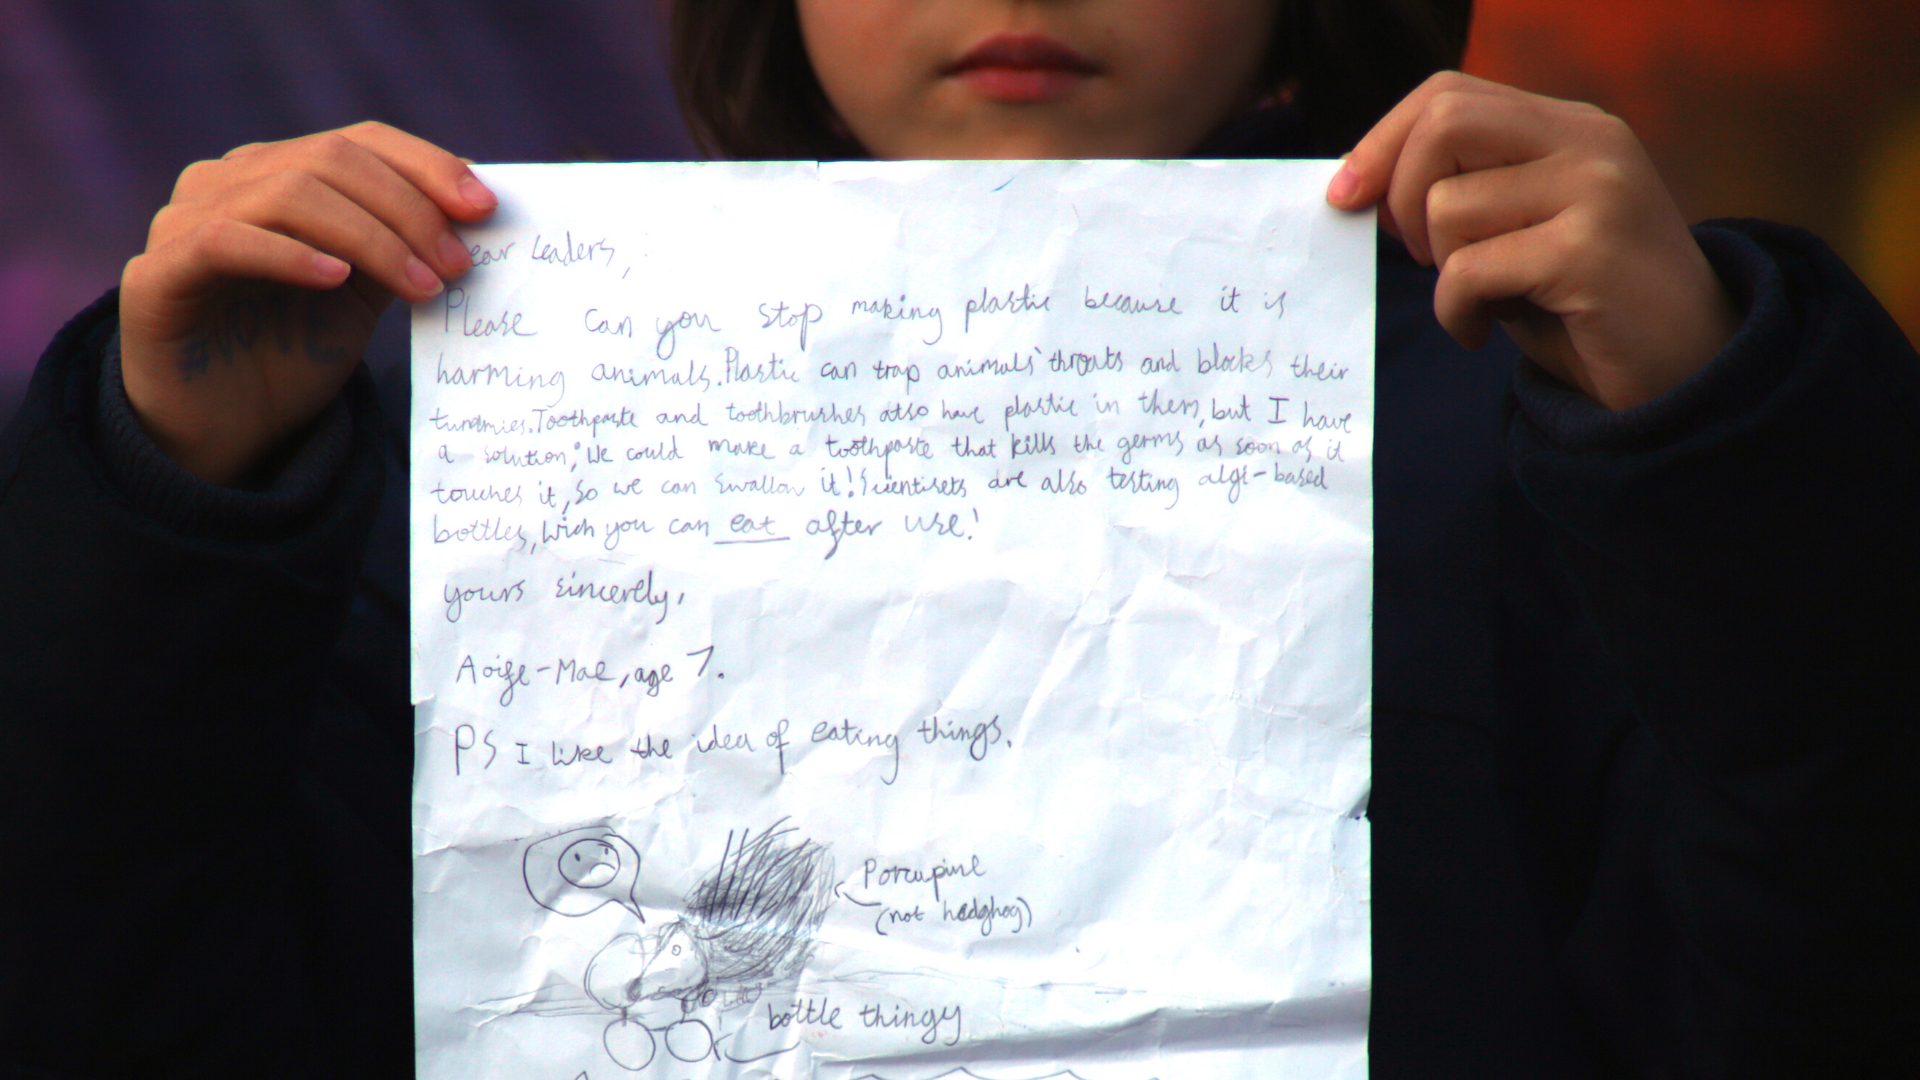 ear Leaders,
Please can you stop making plastic because it is
harming animals. Plastic can trap animals' throats and blocks their
tummies. Toothpaste and toothbrushes also have plastic in them, but I have
a solution; We could make a toothpaste that kills the germs as soon as it
touches it, so we can swallow it! Scientisets are also testing algi-based
bottles, wich you can eat after use!
yours sincerely,
Aoife-Mae, age 7.
PS I like the idea of eating things.
Porcupine
(not hedghog)
bottle thingy